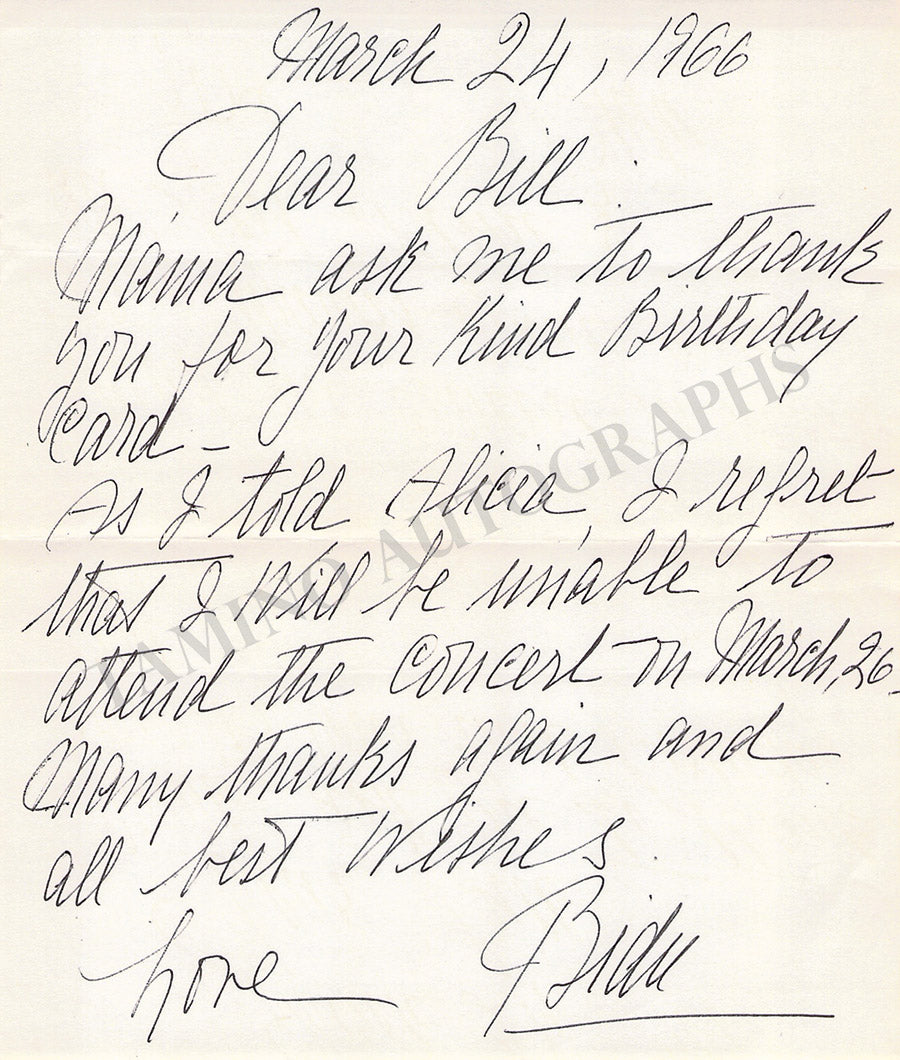 March 24, 1966
Dear Bill.
Mama ask me to thank
you for your kind Birthday
Card –
As I told Alicia, I regret
that I will be unable to
attend the concert on March, 26.
Many thanks again and
all best wishes.
Love Bidu
TAMINO AUTOGRAPHS